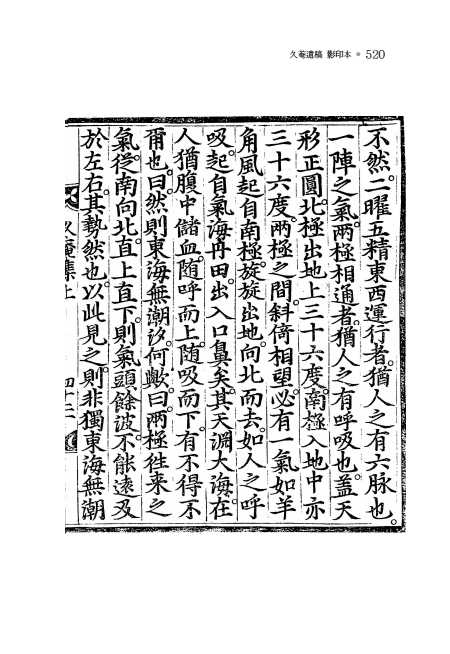 久菴遺稿 影印本 ● 520
不然。二曜五精東西運行者。猶人之有六脉也。
一陣之氣。兩極相通者。猶人之有呼吸也。盖天
形正圓。北極出地上三十六度。南極入地中亦
三十六度。兩極之間。斜倚相望。必有一氣如羊
角風起自南極。旋旋出地。向北而去。如人之呼
吸。起自氣海丹田。出入口鼻矣。其天淵大海。在
人猶腹中儲血。随呼而上。随吸而下。有不得不
甭也。曰。然則東海無潮汐。何歟。曰。兩極徃来之
氣。從南向北。直上直下。則氣頭餘波。不能遠及
於左右。其勢然也。以此見之。則非獨東海無潮
久菴集上 四十二